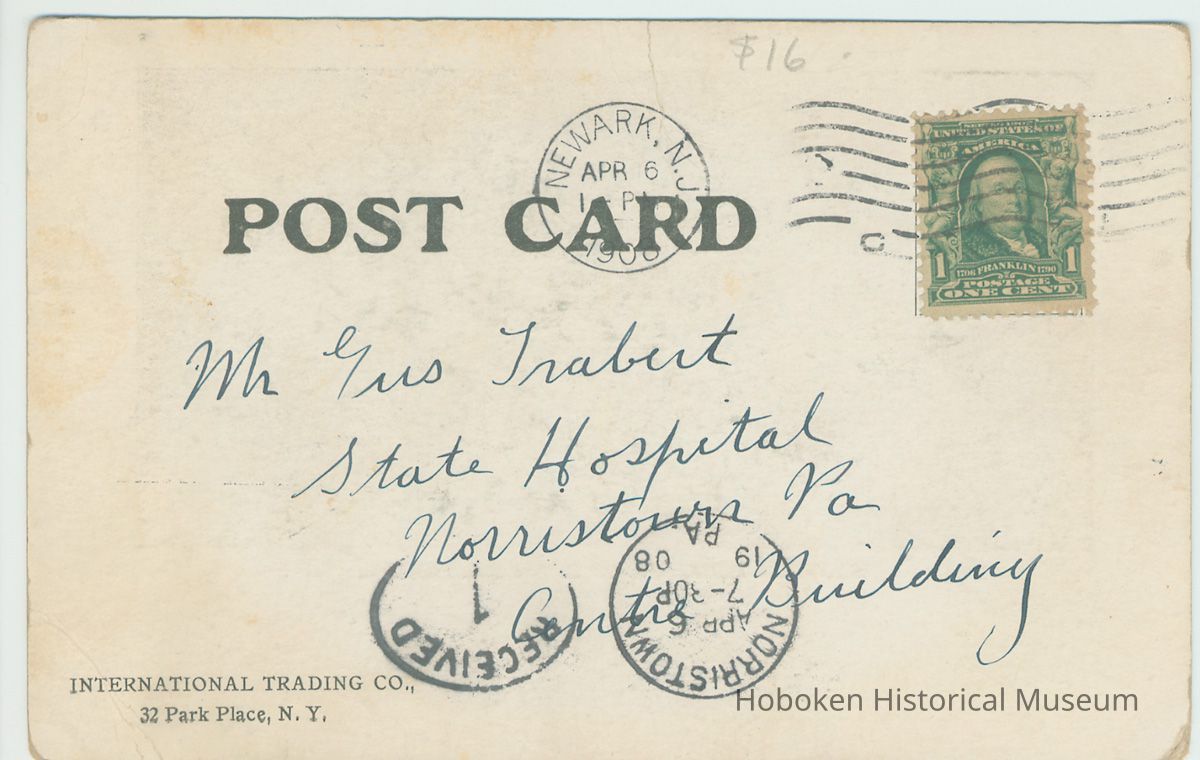 $16
NEWARK, N.J.
APR 6
1908
POST CARD
SERIES 1902
UNITED STATES OF
AMERICA
1 1706 FRANKLIN 1790 1
POSTAGE
ONE CENT
Mr Gus Trabert
State Hospital
Norristown Pa
Centre Building
RECEIVED
1
NORRISTOWN
APR 6
7-30P
19 08
PA
INTERNATIONAL TRADING CO.,
32 Park Place, N. Y.
Hoboken Historical Museum